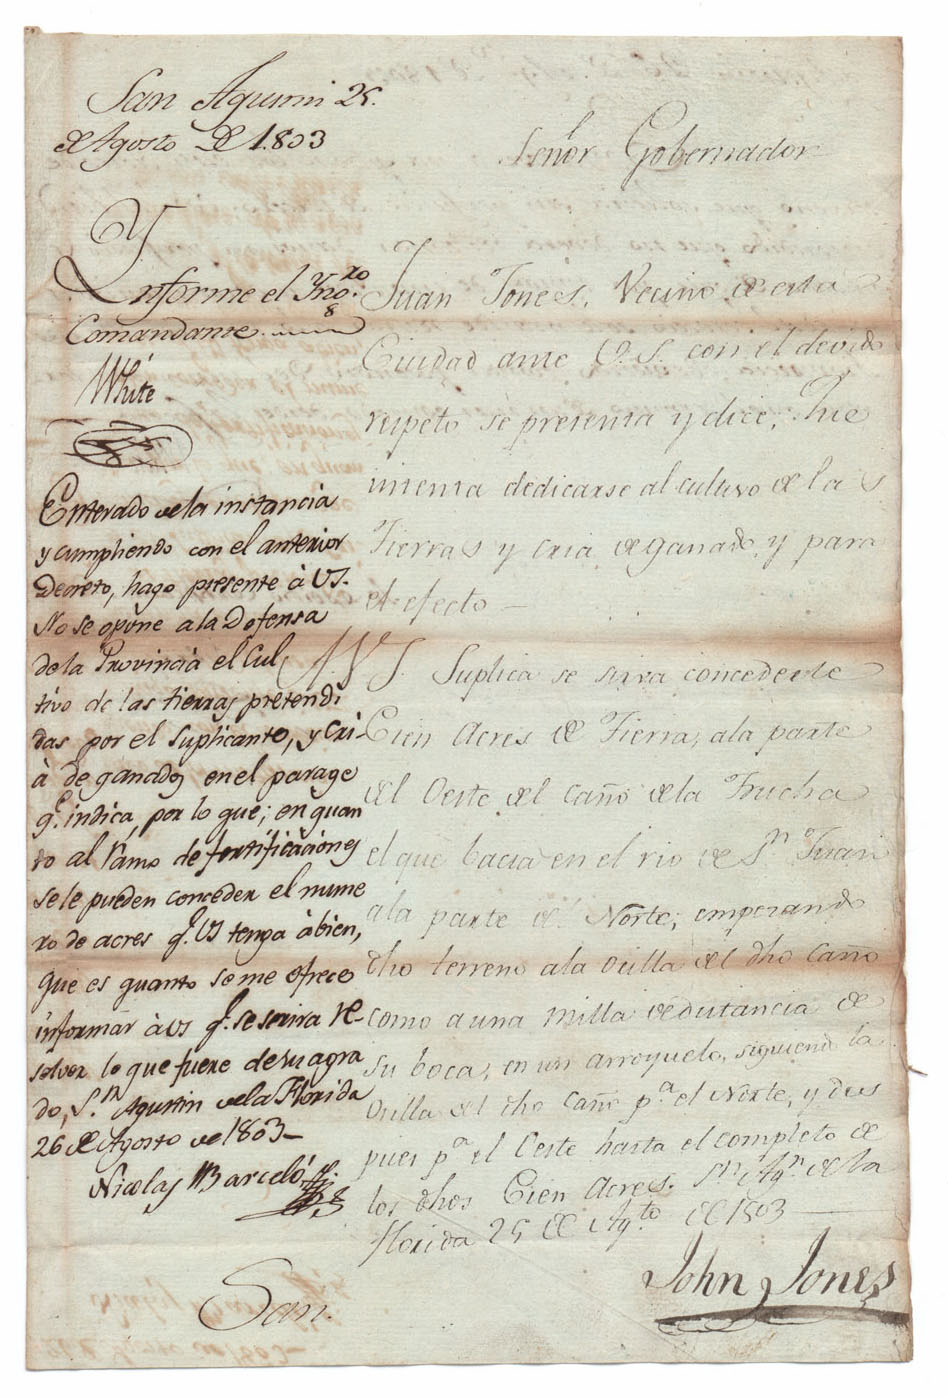 San Agustin 25.
de Agosto de 1803
Señor Gobernador
Ynforme el Yng.ro
Comandante
White
Juan Jones, Vecino de esta
Ciudad ante V.S. con el devido
respeto se presenta y dice; Que
intenta dedicarse al cultivo de las
Tierras y cria de ganado, y para
el efecto
A V.S. Suplica se sirva concederle
Cien Acres de Tierra, ala parte
del Oeste del Caño dela Trucha
el que bacia en el rio de Sn Juan
ala parte del Norte; empezando
dho terreno ala orilla del dho Caño
como a una milla de distancia de
su boca, en un arroyuelo, siguiendo la
orilla del dho Caño pa el Norte, y des
pues pa el Oeste hasta el completo de
los dhos Cien Acres. Sn Agn de la
Florida 25 de Agto de 1803
John Jones
Enterado dela instancia
y cumpliendo con el anterior
Decreto, hago presente à VS.
No se opone ala Defensa
de la Provincia el Cul
tivo de las tierras pretendi
das por el suplicante, y cri-
à de ganados en el parage
q.e indica, por lo que; en quan
to al ramo de fortificaciones
se le pueden conceder el nume
ro de acres q.e VS tenga à bien,
que es quanto se me ofrece
informar à VS q.e se servira re-
solver lo que fuere de su agra
do, S.n Agustin dela Florida
26 de Agosto de 1803
Nicolas Barceló
San.